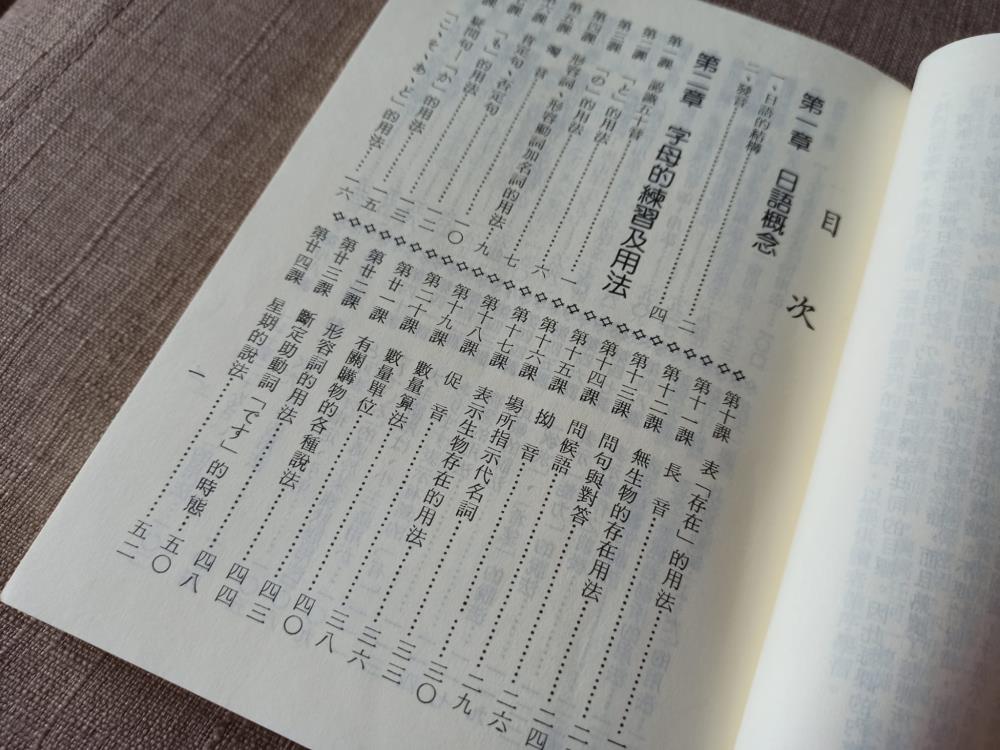 目次
第一章 日語概念
一、日語的結構……二
二、發音……四
第二章 字母的練習及用法
第一課 認識五十音……一
第二課 「と」的用法……六
第三課 「の」的用法……七
第四課 形容詞、形容動詞加名詞的用法……九
第五課 濁音……一〇
第六課 肯定句、否定句……一二
課 「も」的用法……一三
疑問句—「か」的用法……一五
「こ、そ、あ、ど」的用法……一六
第十課 表「存在」的用法……
第十一課 長音……
第十二課 無生物的存在用法……二四
第十三課 問句與對答……二六
第十四課 問候語……二九
第十五課 拗音……三〇
第十六課 場所指示代名詞……三三
第十七課 表示生物存在的用法……三六
第十八課 促音……三八
第十九課 數量算法……四〇
第二十課 數量單位……四三
第廿一課 有關購物的各種說法……四四
第廿二課 形容詞的用法……四八
第廿三課 斷定助動詞「です」的時態……五〇
第廿四課 星期的說法……五二
一